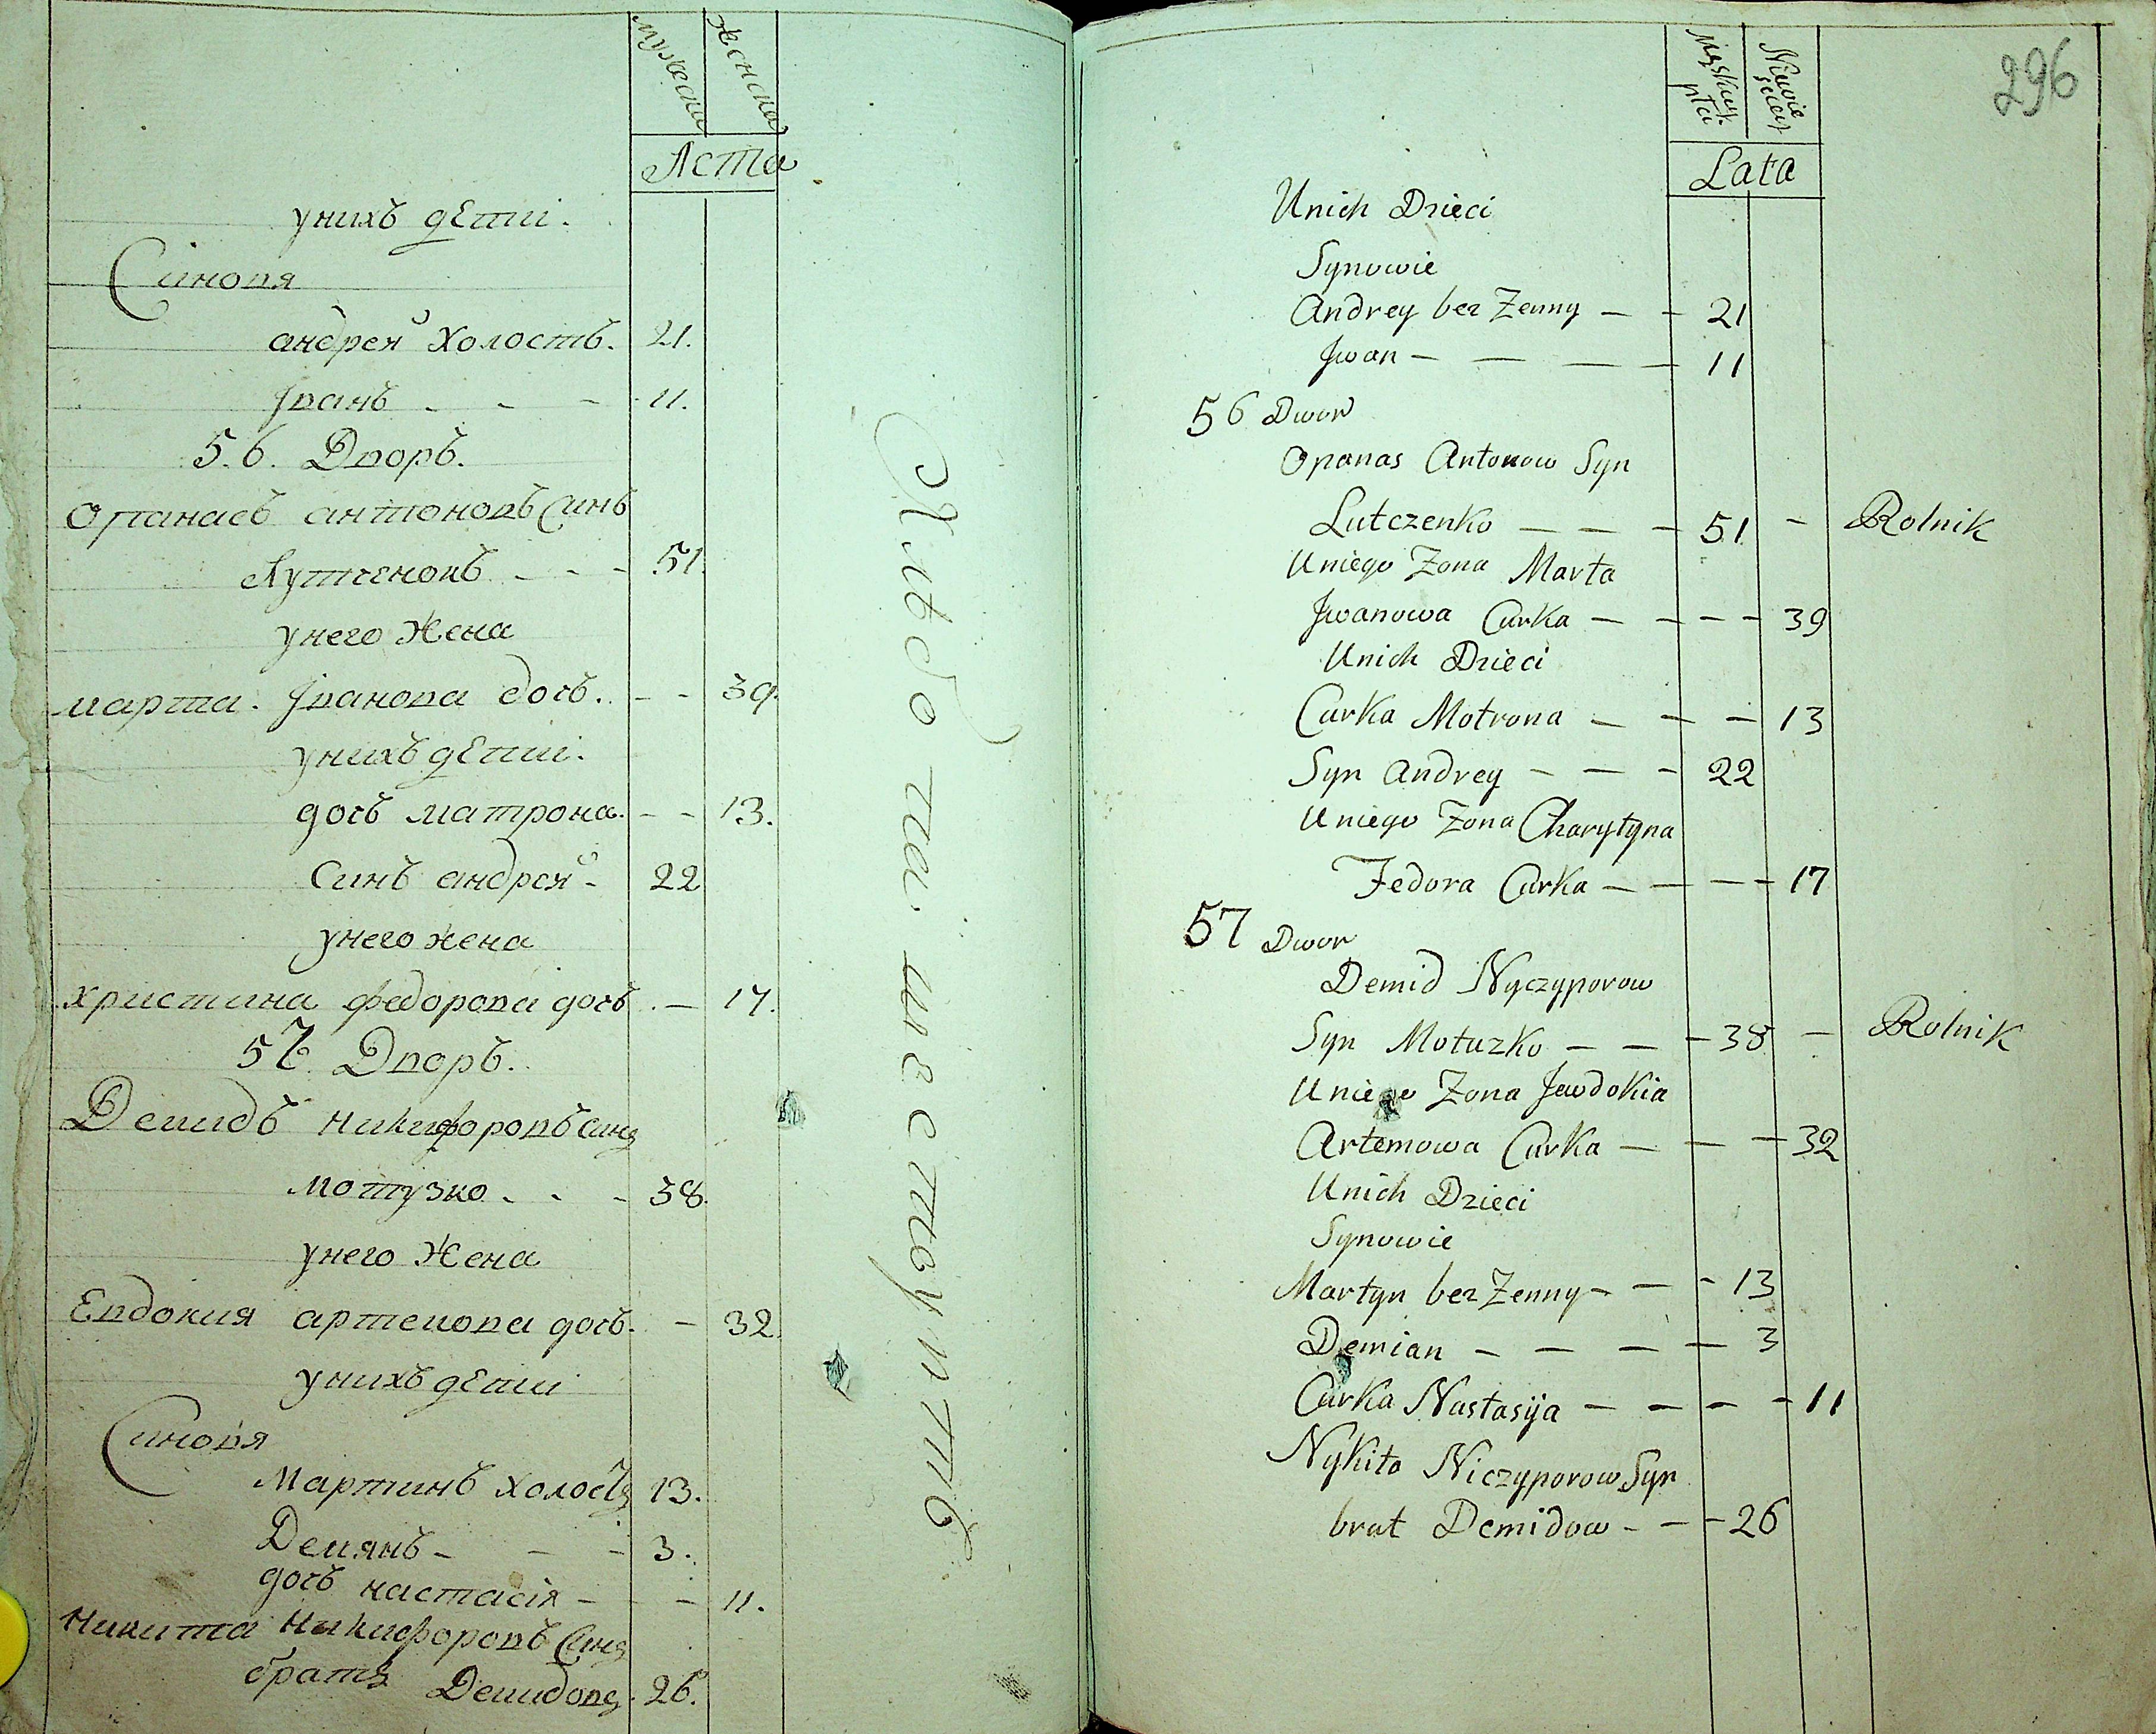 мужеска
женска
Лета
унихъ дЕтиі.
Синовя
андрей холостъ. 21.
Іванъ - - - 11.
5.6. Дворъ.
Опанасъ антоновъ Синъ
Лутченокъ - - - 51.
унего жена
марта. Іванова дочъ. - - 39.
унихъ дЕтиі.
дочъ матрона. - - 13.
Синъ андрей - 22
унего жена
христина федорова дочъ. - 17.
57. Дворъ.
Демидъ никифоровъ синъ
мотузко - - - 38.
унего жена
Евдокия артемова дочъ. - 32.
унихъ дЕтиі
Синовя
Мартинъ холостъ 13.
Демянъ - - - 3.
дочъ настасія - - 11.
Никита Никифоровъ Синъ
братъ Демидовъ. 26.
Męskiey płci
Niewiesciey
Lata
296
Unich Dzieci
Synowie
Andrey bez Zenny - - 21
Jwan - - - - 11
56 Dwor
Opanas Antonow Syn
Lutczenko - - - 51 - Rolnik
Uniego Zona Marta
Jwanowa Curka - - - - 39
Unich Dzieci
Curka Motrona - - - 13
Syn Andrey - - - 22
Uniego Zona Charytyna
Fedora Curka - - - - 17
57 Dwor
Demid Nyczyporow
Syn Motuzko - - - 38 - Rolnik
Uniego Zona Jewdokia
Artemowa Curka - - - 32
Unich Dzieci
Synowie
Martyn bez Zenny - - - 13
Demian - - - - 3
Curka Nastasija - - - - 11
Nykita Niczyporow Syn
brat Demidow - - - 26